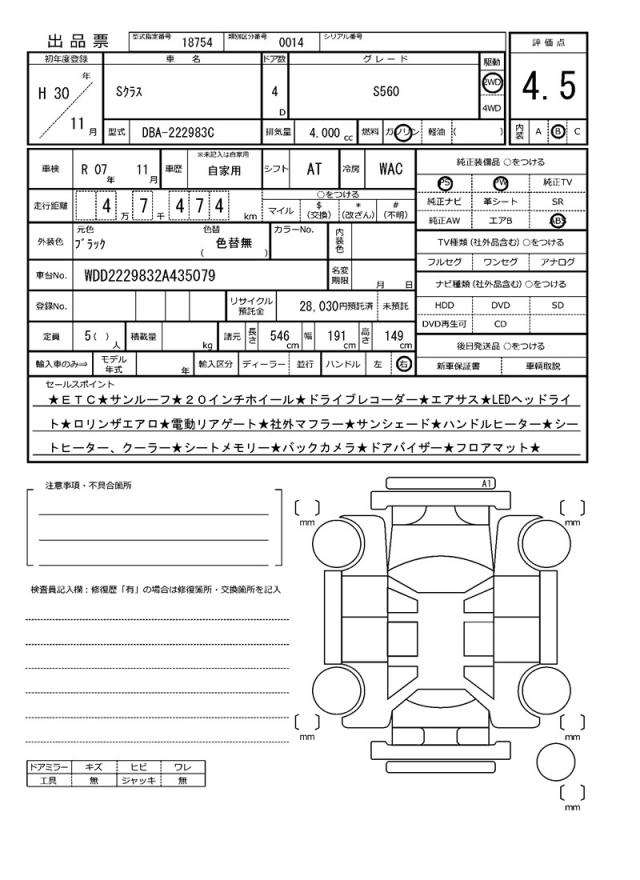 出品票
型式指定番号 18754 類別区分番号 0014 シリアル番号
評価点
4.5
内装 A B C
初年度登録 車名 ドア数 グレード 駆動
H 30 年 11 月
Sクラス 4 D S560 2WD 4WD
型式 DBA-222983C 排気量 4,000 cc 燃料 ガソリン 軽油 ( )
車検 R 07 年 11 月 車歴 ※未記入は自家用 自家用 シフト AT 冷房 WAC
走行距離 4 万 7 千 4 7 4 km
○をつける
マイル $ (交換) * (改ざん) # (不明)
外装色 元色 ブラック 色替 色替無 ( ) カラーNo. 内装色
車台No. WDD2229832A435079 名変期限 月 日
登録No. リサイクル預託金 28,030円預託済 未預託
定員 5( ) 人 積載量 kg 諸元 長さ 546 cm 幅 191 cm 高さ 149 cm
輸入車のみ⇒ モデル年式 年 輸入区分 ディーラー 並行 ハンドル 左 右
純正装備品 ○をつける
PS PW 純正TV
純正ナビ 革シート SR
純正AW エアB ABS
TV種類 (社外品含む) ○をつける
フルセグ ワンセグ アナログ
ナビ種類 (社外品含む) ○をつける
HDD DVD SD
DVD再生可 CD
後日発送品 ○をつける
新車保証書 車輌取説
セールスポイント
★ETC★サンルーフ★20インチホイール★ドライブレコーダー★エアサス★LEDヘッドライ
ト★ロリンザエアロ★電動リアゲート★社外マフラー★サンシェード★ハンドルヒーター★シー
トヒーター、クーラー★シートメモリー★バックカメラ★ドアバイザー★フロアマット★
注意事項・不具合箇所
検査員記入欄：修復歴「有」の場合は修復箇所・交換箇所を記入
A1
mm
mm
mm
mm
mm
ドアミラー キズ ヒビ ワレ
工具 無 ジャッキ 無